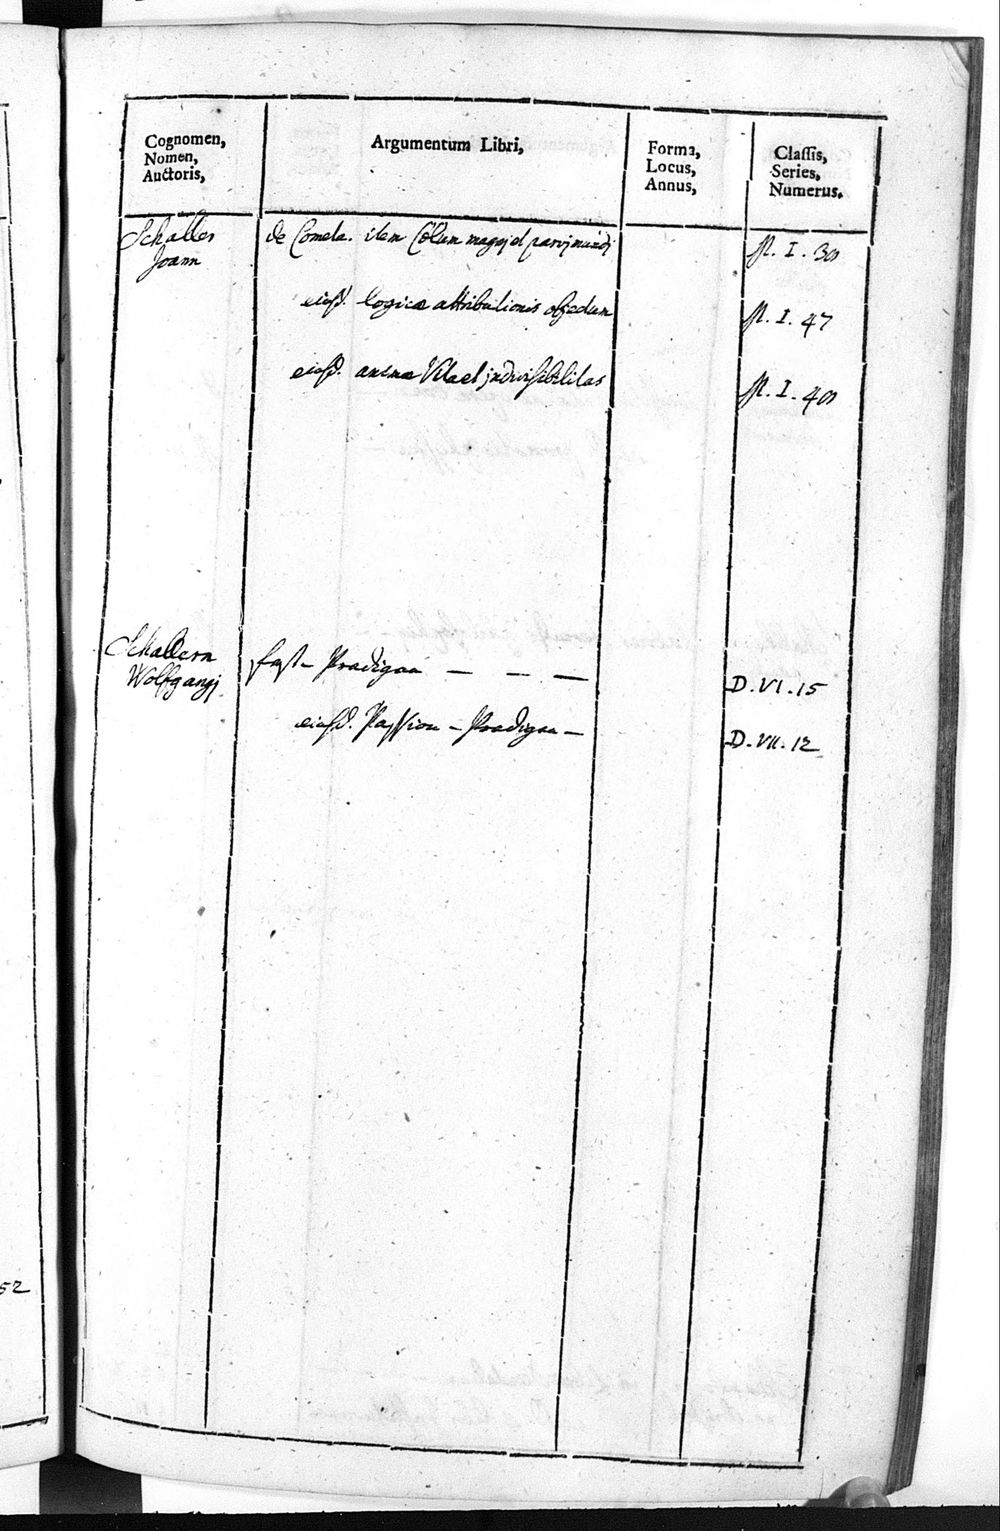 Cognomen,
Nomen,
Auctoris,
Argumentum Libri,
Forma,
Locus,
Annus,
Classis,
Series,
Numerus.
Schaller
Joann
de Cometa. item magnj et parvj mundj
I. 30
eiusd. logicæ attributionis objectum
I. 47
eiusd. animæ Vita et jndivisibilitas
I. 40
Schallern
Wolfgangj
fast- Predigen — — —
D. VI. 15
eiusd. Passion - Predigen —
D. VII. 12
52